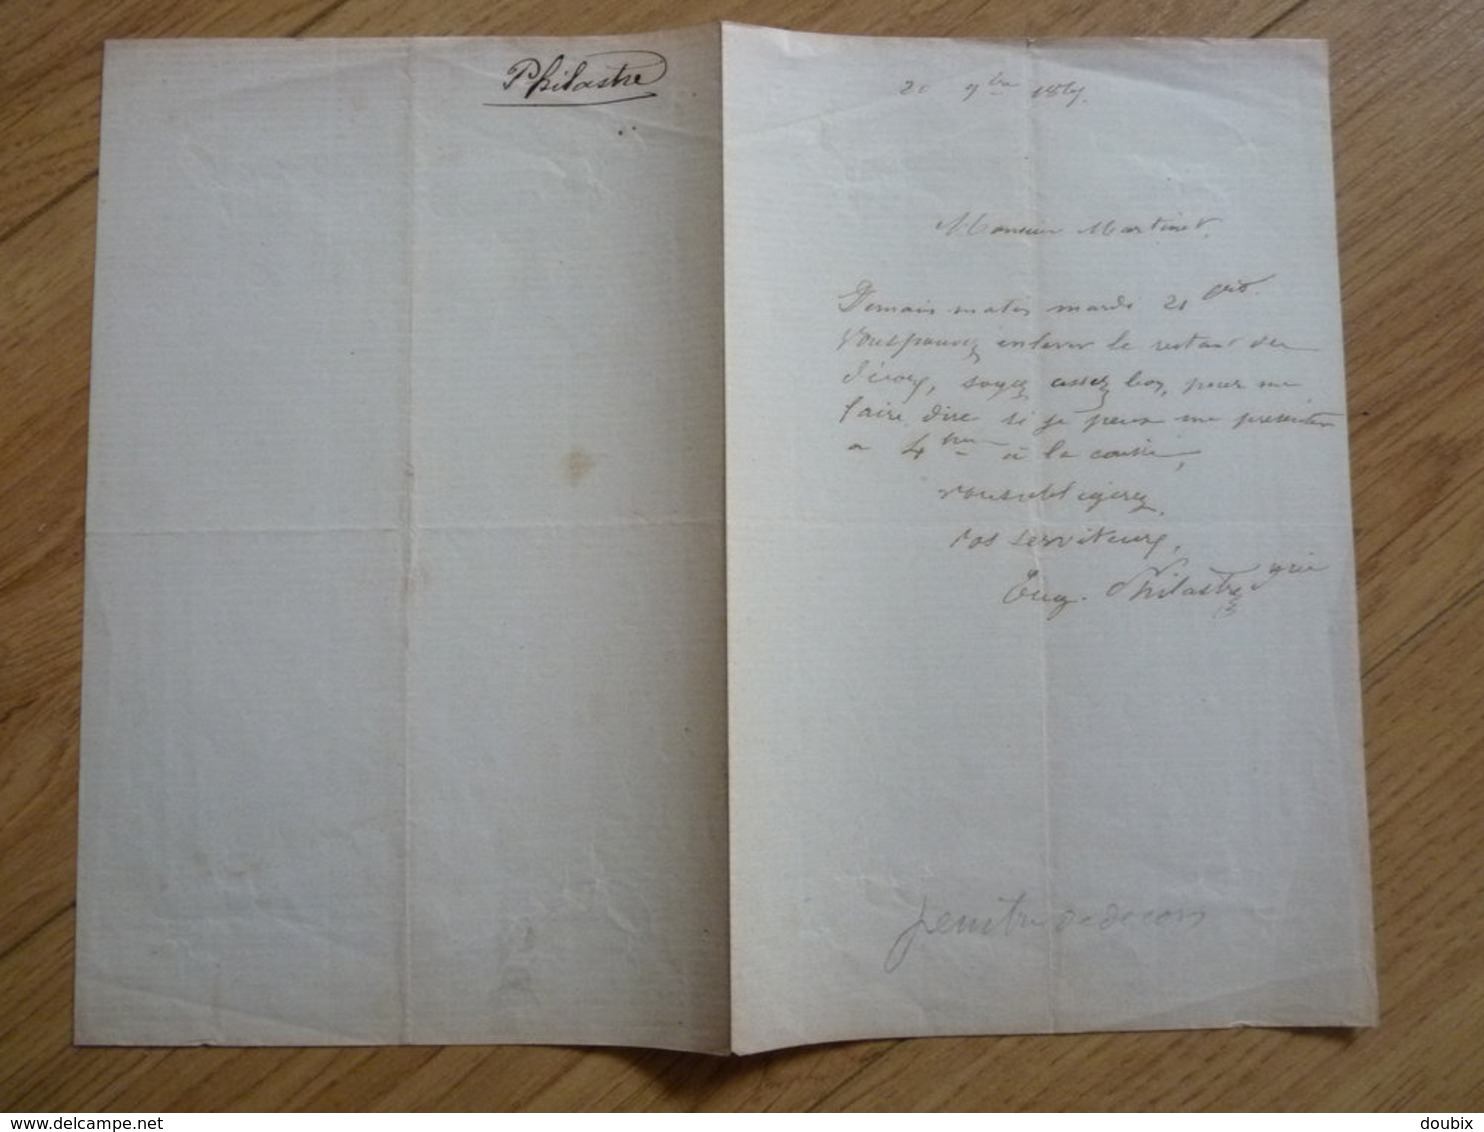 Philastre
20 9bre 1869.
Monsieur Martinet.
Demain matin mardi 21
vous pouvez enlever le restant du
décors, soyez assez bon, pour me
faire dire si je peux me presenter
a 4 à la caisse,
vous obligerez
vos serviteurs,
Eug. Philastre
peintre de decors
delcampe.net
doubix